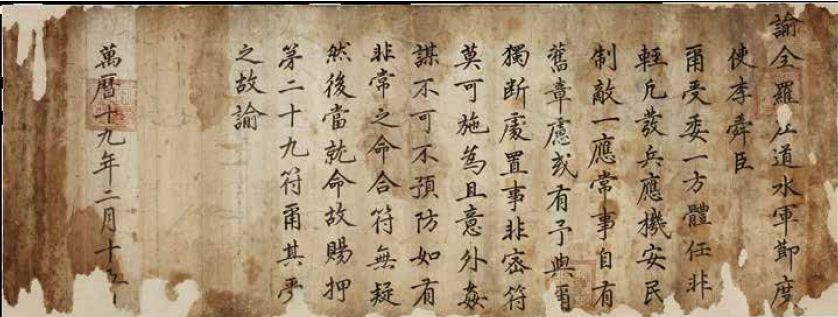 諭全羅左道水軍節度
使李舜臣
爾受委一方體任非
輕凡發兵應機安民
制敵一應常事自有
舊章慮或有予與爾
獨斷處置事非密符
莫可施爲且意外姦
謀不可不預防如有
非常之命合符無疑
然後當就命故賜押
第二十九符爾其受
之故諭
萬曆十九年二月十五